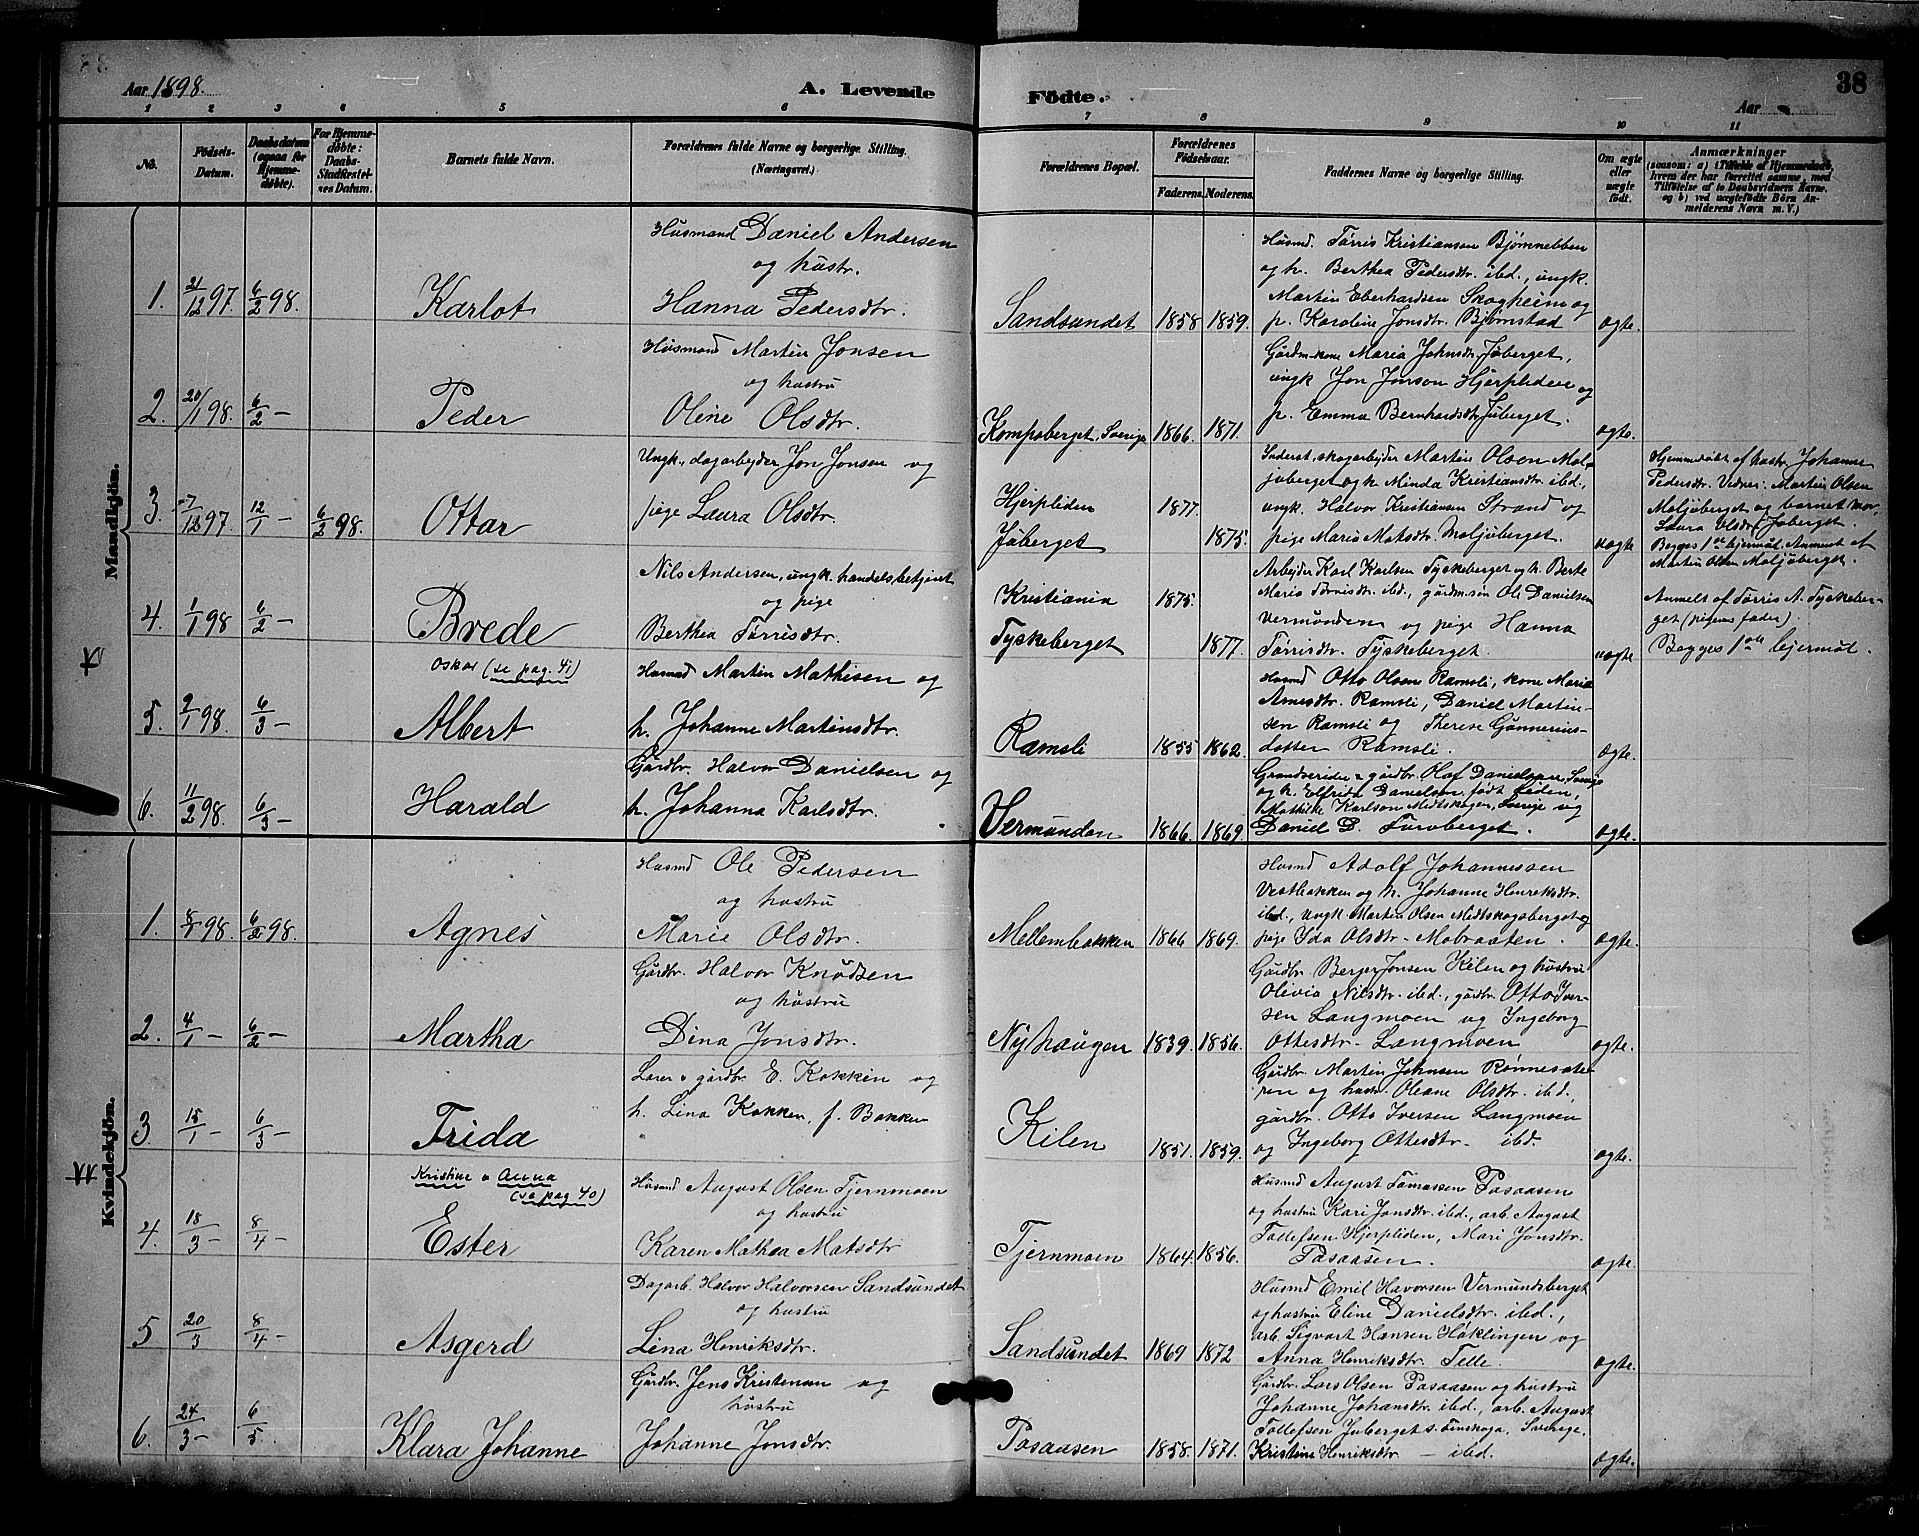 Aar 1898.
A. Levende
Födte.
Aar
38
1 2 3 4 5 6 7 8 9 10 11
No.
Födsels-Datum.
Daabsdatum (ogsaa for Hjemmedöbte).
For Hjemmedöbte: Daabs-Stadfæstelses Datum.
Barnets fulde Navn.
Forældrenes fulde Navne og borgerlige Stilling.
(Næringsvei.)
Forældrenes Bopæl.
Forældrenes Födselsaar.
Faderens.
Moderens.
Faddernes Navne og borgerlige Stilling.
Om ægte eller uægte født.
Anmærkninger
(saasom: a) i Tilfælde af Hjemmedaab,
hvem der har forrettet samme, med
Tilføielse af to Daabsvidners Navne.
og b) ved uægtefödte Börn Anmelderens Navn m. V.)
Mandkjön.
1. 21/12 97. 6/2 98. Karlot
Husmand Daniel Andersen
og hustr.
Hanna Pedersdtr.
Sandsundet 1858 1859.
Husmd. Tørris Kristiansen Bjørnnebben
og h. Berthea Pedersdtr. ibd., ungk.
Martin Eberhardsen Skogheim og
p. Karoline Jonsdtr. Bjørnstad
ægte.
2. 20/1 98. 6/2 – Peder
Husmand Martin Jonsen
og hustru
Oline Olsdtr.
Kompsberget, Sverige 1866. 1871.
Gårdm.kone Maria Johnsdtr. Jøberget,
ungk Jon Jonson Hjerpliden og
p. Emma Bernhardsdtr. Juberget.
ægte.
3. 7/12 97. 12/1 – 6/2 98. Ottar
Ungk., dagarbejder Jon Jonsen og
pige Laura Olsdtr.
Hjerpliden 1877.
Jøberget 1875.
Inderst, skogarbejder Martin Olsen Mal-
jøberget og k. Minda Kristiansdtr. ibd.,
ungk. Halvor Kristiansen Strand og
pige Maria Matsdtr. Maljøberget.
uægte
Hjemmedøbt af hustr. Johanne
Pedersdtr. Vidner: Martin Olsen
Maljøberget og barnets mor,
Laura Olsdtr. Jøberget.
Begges 1ste lejermål. Anmeldt af
Martin Olsen Maljøberget.
4. 1/1 98 6/2 – Brede
Nils Andersen, ungk. handelsbetjent
og pige
Berthea Tørrisdtr.
Kristiania 1875.
Tyskeberget 1877.
Arbejder Karl Karlsen Tyskeberget og h. Berte
Maria Tørrisdtr. ibd., gårdm.søn Ole Danielsen
Vermunden og pige Hanna
Tørrisdtr. Tyskeberget.
uægte
Anmelt af Tørris A. Tyskeber-
get (pigens fader).
Begges 1ste lejermål.
Oskar (se pag. 41)
5. 2/1 98. 6/3 – Albert
Husmd Martin Mathisen og
h. Johanne Martinsdtr.
Ramsli 1855 1862.
Husmd Otto Olsen Ramsli, kone Maria
Arnesdtr. Ramsli, Daniel Martin-
sen Ramsli og Therese Gunnerius-
datter Ramsli.
Ægte.
6. 11/2 98. 6/3 – Harald
Gårdbr. Halvor Danielsen og
h. Johanna Karlsdtr.
Vermunden 1866. 1869.
gårdbr. Olof Danielsson, Sverige
og h. Elfrida Danielson, født Leden,
Mathilde Karlson Medtskogen, Sverige og
Daniel D. Furuberget.
ægte.
Kvindekjön.
1. 8/1 98. 6/2 98. Agnes
Husmd Ole Pedersen
og hustru
Marie Olsdtr.
Mellembakken 1866 1869.
Husmd Adolf Johannessen
Vestbakken og h. Johanne Henriksdtr.
ibd., ungk. Martin Olsen Medtskogsberget og
pige Ida Olsdtr. Mobraaten.
ægte.
2. 4/1 – 6/2 – Martha
Gårdbr. Halvor Knudsen
og hustru
Dina Jonsdtr.
Nyhaugen 1839. 1856.
Gårdbr Berger Jonsen Kilen og hustru
Olivia Nilsdtr. ibd., gårdbr. Otto Iver-
sen Langmoen og Ingeborg
Ottesdtr. Langmoen
ægte.
3. 15/1 – 6/3 – Frida
Lærer & gårdbr E. Kokkin og
h. Lina Kokken, f. Bakken
Kilen 1851. 1859.
Gårdbr. Martin Johnsen Rønnesæte-
ren og hustr. Oleane Olsdtr. ibd.,
gårdbr. Otto Iversen Langmoen
og Ingeborg Ottesdtr. ibd.
ægte.
Kristine & Anna
(se pag 40)
4. 18/3 – 8/4 – Ester
Husmd August Olsen Tjernmoen
og hustru
Karen Mathea Matsdtr
Tjernmoen 1864. 1856.
Husmd August Tomassen Pasaasen
og hustru Kari Jonsdtr. ibd., arb. August
Tollefsen Hjerpliden, Mari Jonsdtr.
Pasaasen.
ægte.
5 20/3 8/4 – Asgerd
Dagarb. Halvor Halvorsen Sandsundet
og hustru
Lina Henriksdtr.
Sandsundet 1869 1872
Husmd Emil Havorsen Vermundsberget
og hustru Eline Danielsdtr. ibd.,
arb. Sigvart Hansen Håklingen og
Anna Henriksdtr. Telle
ægte.
6. 24/3 – 6/5 Klara Johanne
Gårdbr. Jens Kristensen og
hustru
Johanne Jonsdtr.
Pasaasen 1858. 1871.
Gårdbr. Lars Olsen Pasaasen og hustru
Johanne Johansdtr. ibd., arb. August
Tollefsen Juberget s. Finskoga, Sverige,
Kristine Henriksdtr. – ibd.
ægte.